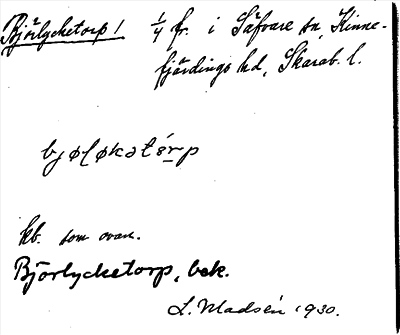 Björlycketorp 1 1/4 fr. i Säfvare sn, Kinne-
fjärdings hd, Skarab. l.
bjøløkətórp
kb. som ovan.
Björlycketorp, bek.
L. Madsén 1930.